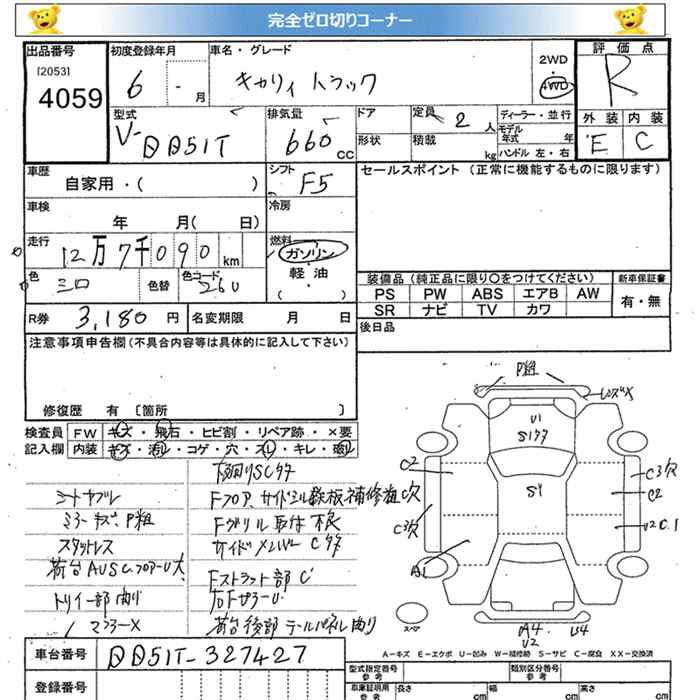 完全ゼロ切りコーナー
出品番号
[2053]
4059
初度登録年月
6 - 月
車名・グレード
キャリィ トラック
2WD
4WD
評価点
R
型式
V-DD51T
排気量
660 CC
ドア
形状
定員
2 人
積載
kg
ディーラー・並行
モデル年式 年
ハンドル 左・右
外装 内装
E C
車歴
自家用・( )
シフト
F5
セールスポイント (正常に機能するものに限ります)
車検
年 月( 日)
冷房
走行
12万7千090 km
燃料
ガソリン
軽油
( ・ )
色
シロ
色替
色コード
26U
装備品 (純正品に限り○をつけてください)
新車保証書
PS PW ABS エアB AW
SR ナビ TV カワ
有・無
R券 3,180 円
名変期限 月 日
後日品
注意事項申告欄(不具合内容等は具体的に記入して下さい)
修復歴 有 [箇所 ]
検査員 FW キズ・飛石・ヒビ割・リペア跡・×要
記入欄 内装 キズ・汚レ・コゲ・穴・スレ・キレ・破レ
下回りSCサ
シートヤブレ
Fフロア、サイドシル鉄板補修粗C穴
ミラーキズ、P粗
Fグリル取付不良
スタッドレス
サイドメンバー Cサ
荷台AUSC、フロアーU大
Fストラット部C
トリイ一部曲り
右FサラーU
マフラーX
荷台後部テールパネル曲り
P粗
レンズX
U1
S1サ
C2
C3穴
C2
S1
C3穴
U2C1
A1
スペア
A4
U2
U4
A-キズ E-エクボ U-凹み W-補修跡 S-サビ C-腐食 XX-交換済
車台番号 DD51T-327427
登録番号
型式指定番号 参考
類別区分番号 参考
車庫証明用 参考
長さ cm
幅 cm
高さ cm